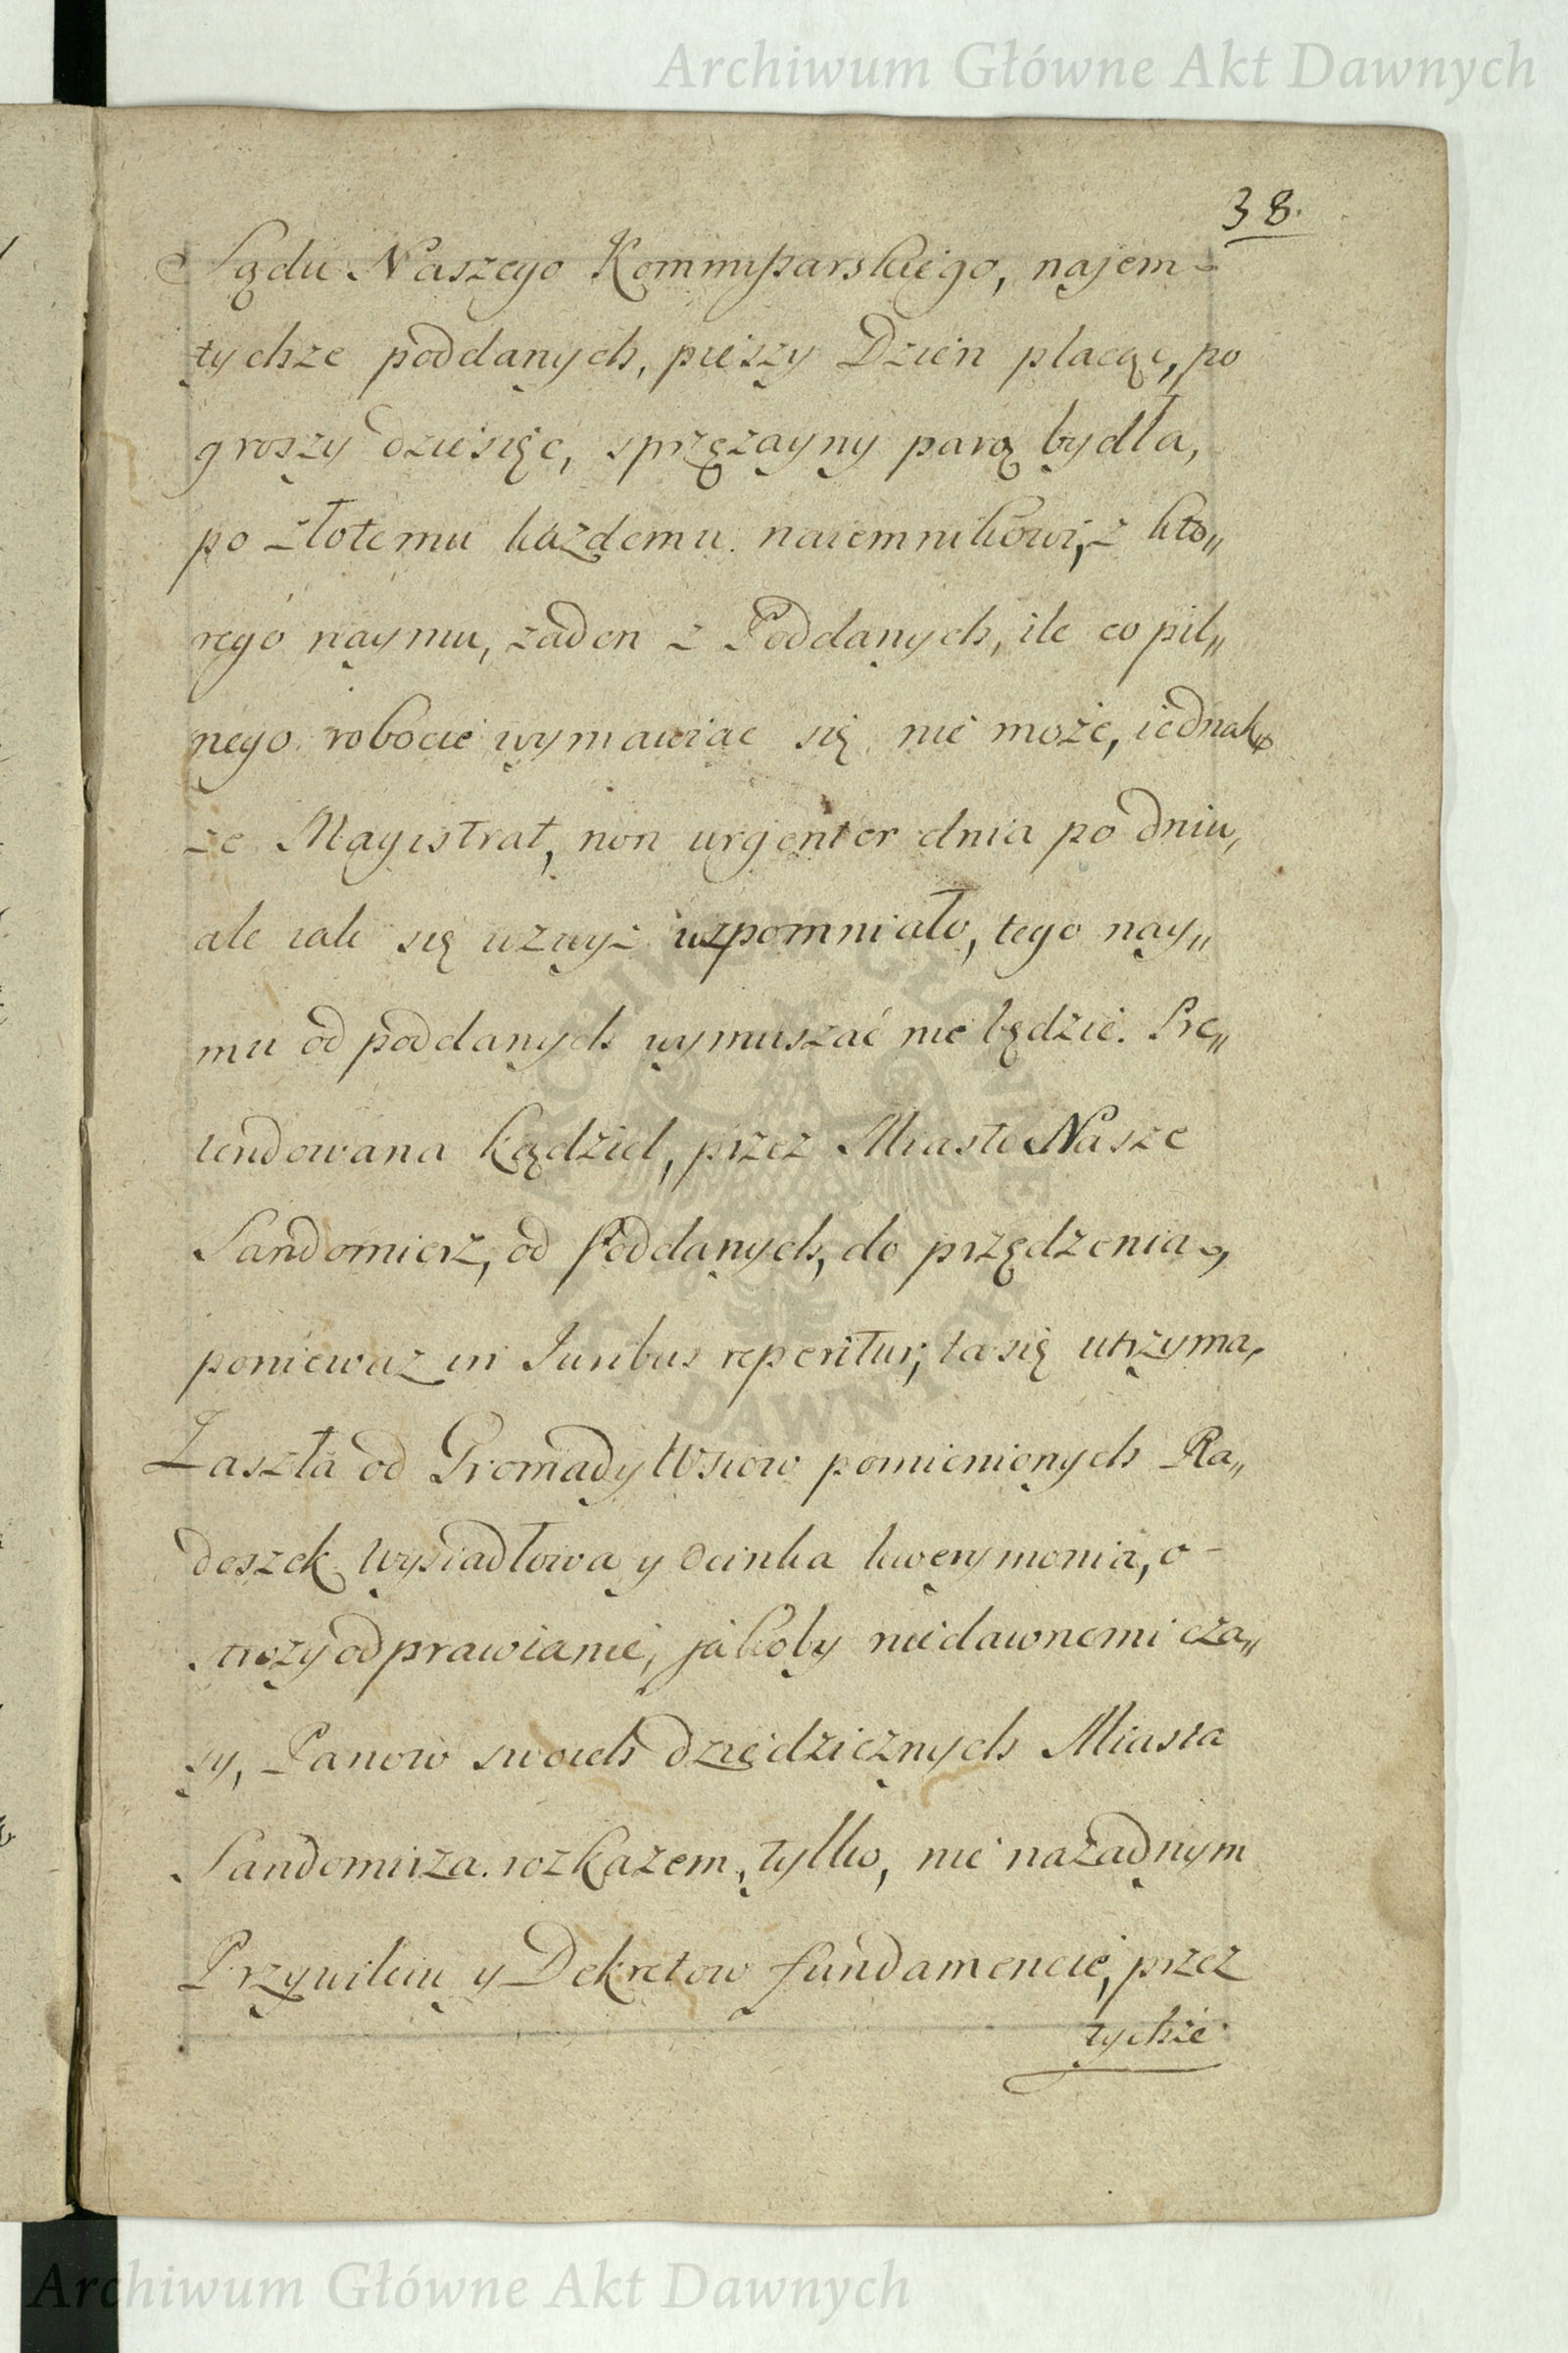 Archiwum Główne Akt Dawnych
38.
Sądu Naszego Kommyßarskiego, najem-
tychze poddanych, pieszy Dzien płacąc, po
groszy dziesięc, sprzęzayny parą bydła,
po złotemu kazdemu naiemnikowi, z kto„
rego naymu, zaden z Poddanych, ile co pil„
nego robocie wymawiac się nie może, iednak„
ze Magistrat, non urgenter dnia po dniu,
ale iak się wzwyz wzpomniało, tego nay„
mu od poddanych wymuszać nie będzie. Pre„
tendowana kądziel, przez Miasto Nasze
Sandomierz, od Poddanych, do przędzenia,
poniewaz in Iuribus reperitur, ta się utrzyma,
Zaszła od Gromady Wsiow pomienionych Ra„
doszek Wysiadłowa y Ocinka kwerymonia, o-
strozy odprawianie, jakoby niedawnemi cza„
sy, Panow swoich dziedzicznych Miasta
Sandomirza rozkazem, tylko, nie nażadnym
Przywileiu y Dekretow fundamencie, przez
tychże
ARCHIWUM GŁÓWNE AKT DAWNYCH
Archiwum Główne Akt Dawnych